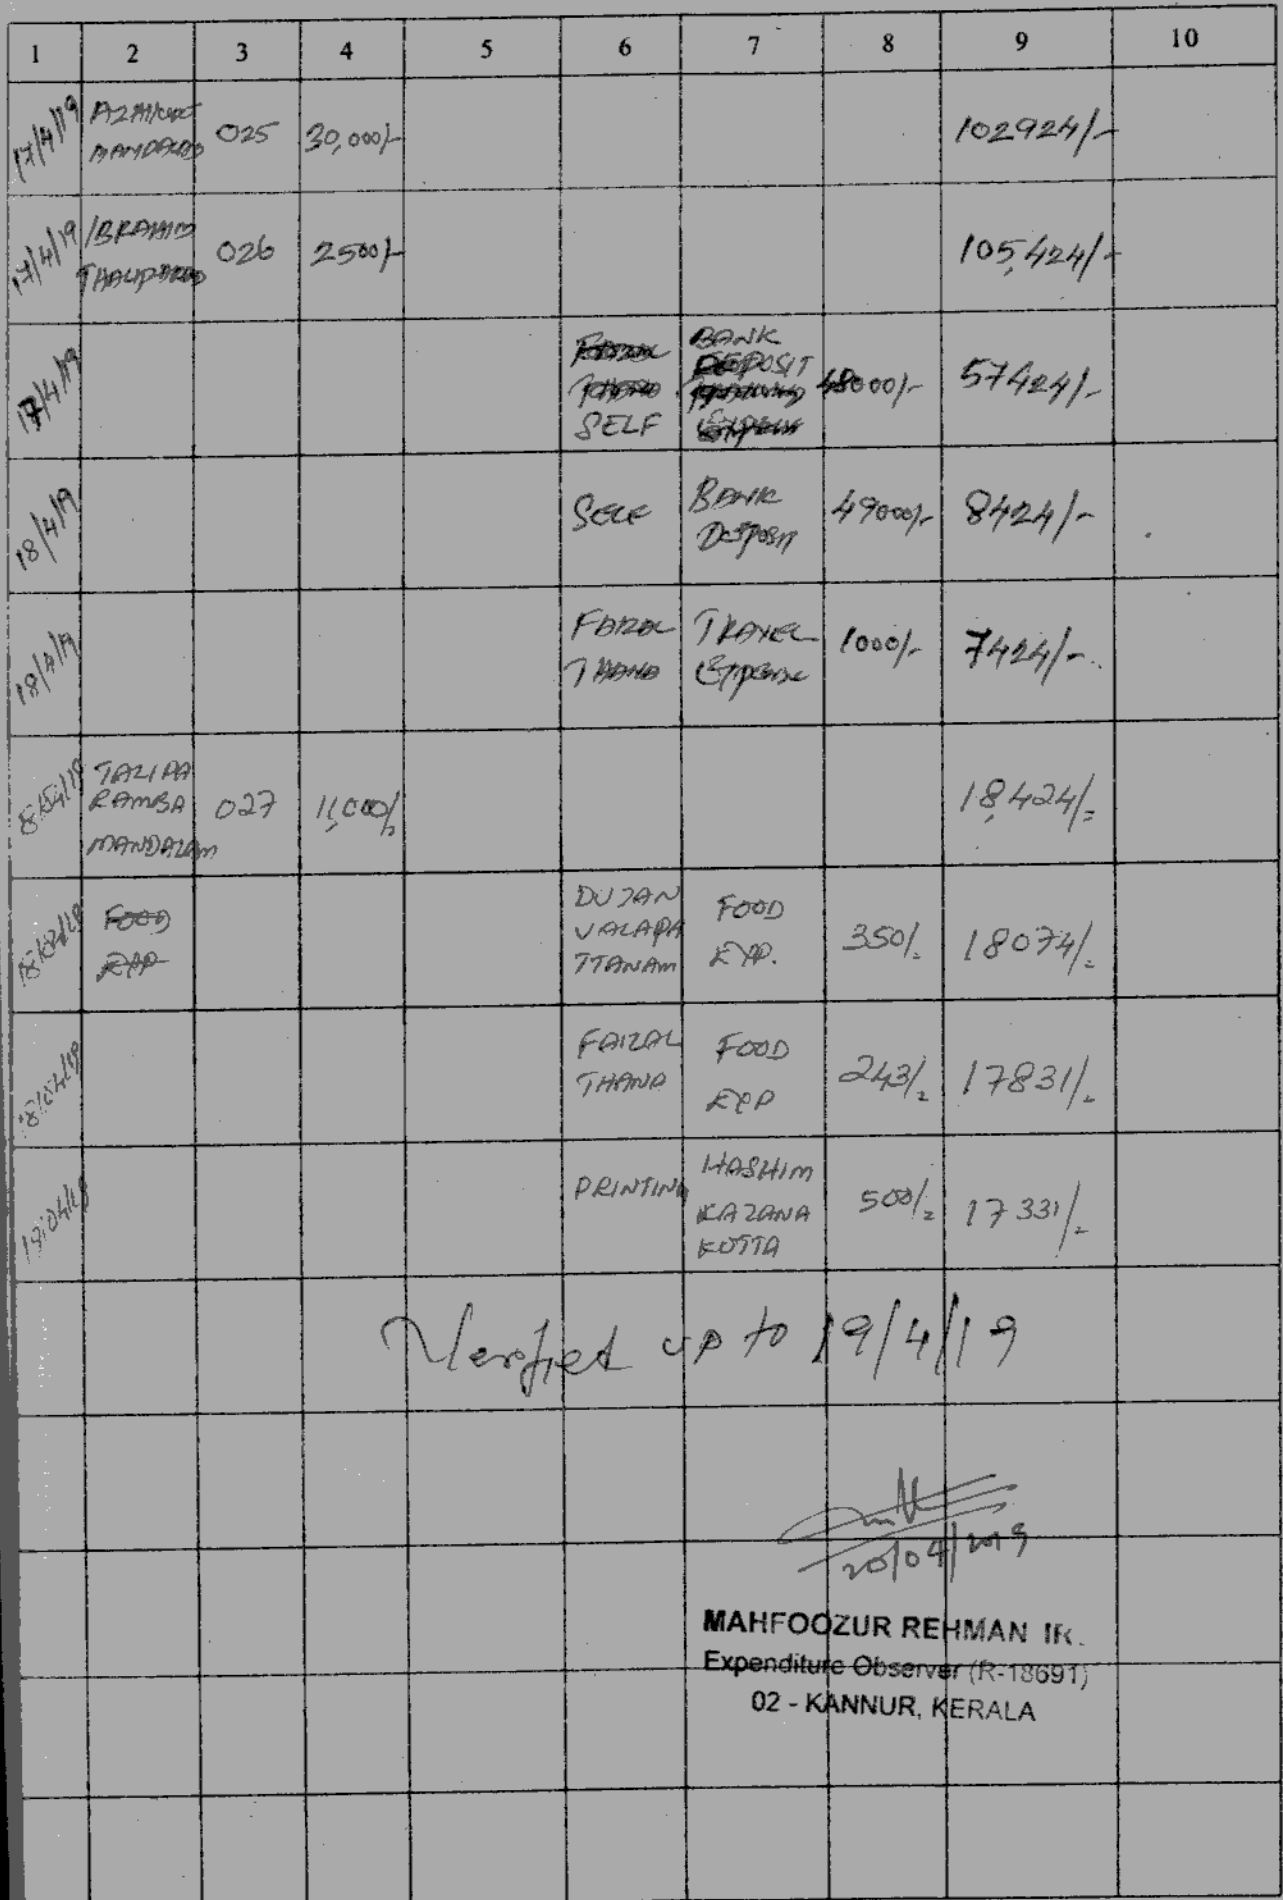 1 2 3 4 5 6 7 8 9 10
17/4/19 025 30,000/- 102924/-
17/4/19 IBRAHIM 026 2500/- 105,424/-
17/4/19 SELF BANK DEPOSIT 48000/- 57424/-
18/4/19 SELF BANK DEPOSIT 49000/- 8424/-
18/4/19 FAIZAL THANA TRAVEL EXPENSE 1000/- 7424/-
18/04/19 TALIPA RAMBA MANDALAM 027 11,000/- 18,424/=
18/04/19 FOOD EXP DUJAN VALAPA TTANAM FOOD EXP. 350/= 18074/=
18/04/19 FAIZAL THANA FOOD EXP 243/= 17831/=
19/04/19 PRINTING HASHIM KAZANA KOTTA 500/= 17331/=
Verified up to 19/4/19
20/04/2019
MAHFOOZUR REHMAN IR.
Expenditure Observer (R-18691)
02 - KANNUR, KERALA